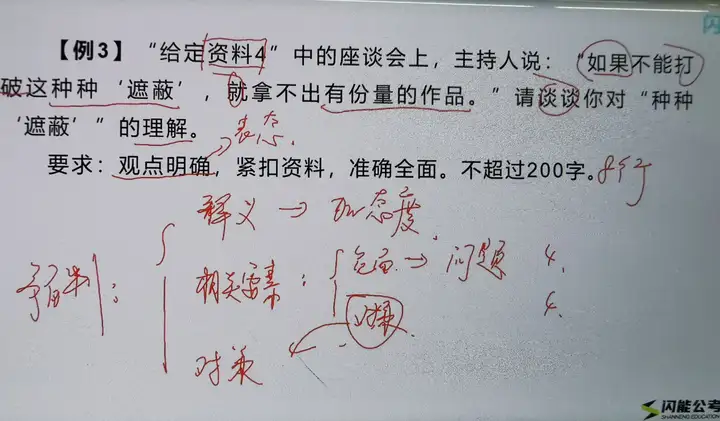 【例3】“给定资料4”中的座谈会上，主持人说：“如果不能打
破这种种‘遮蔽’，就拿不出有份量的作品。”请谈谈你对“种种
‘遮蔽’”的理解。
表态
要求：观点明确，紧扣资料，准确全面。不超过200字。8行
释义→ 态度
相关要素：负面→问题 4.
对策 4.
对策
闪能公考
SHANNENG EDUCATION